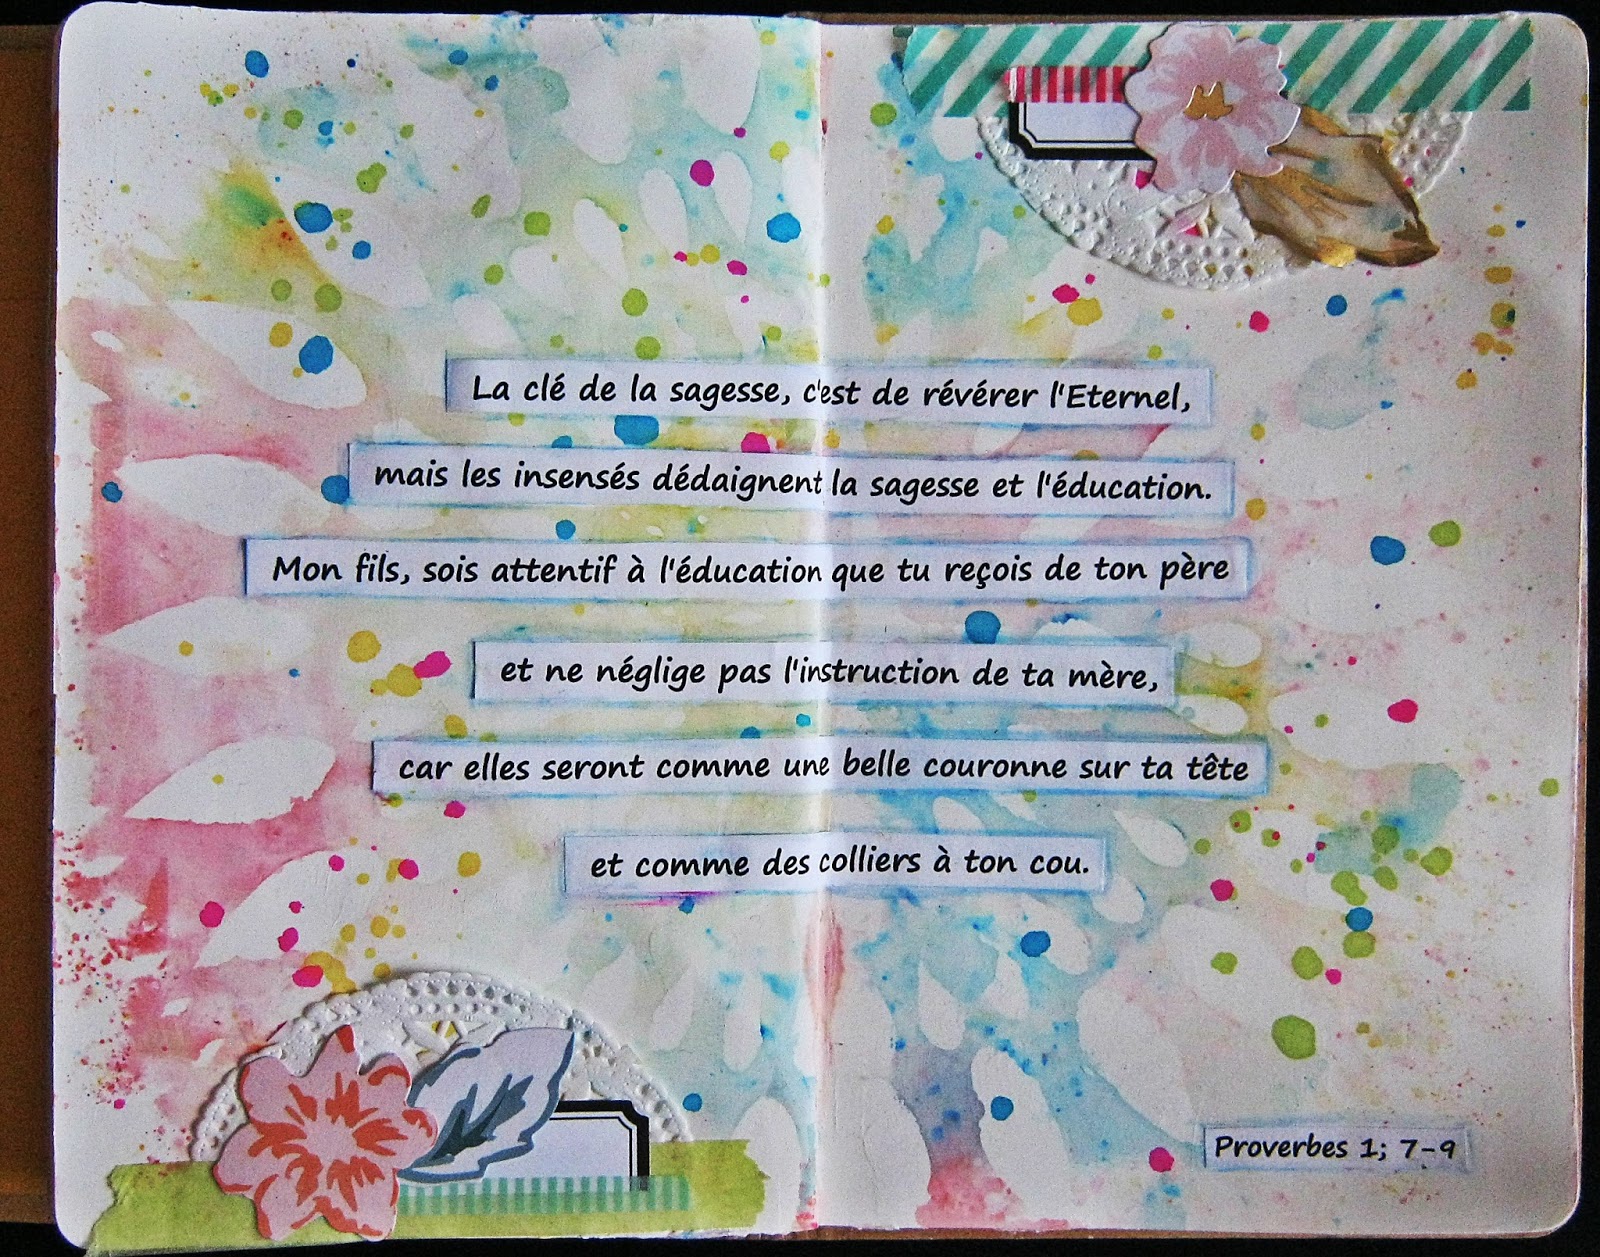 La clé de la sagesse, c'est de révérer l'Eternel,
mais les insensés dédaignent la sagesse et l'éducation.
Mon fils, sois attentif à l'éducation que tu reçois de ton père
et ne néglige pas l'instruction de ta mère,
car elles seront comme une belle couronne sur ta tête
et comme des colliers à ton cou.
Proverbes 1; 7-9